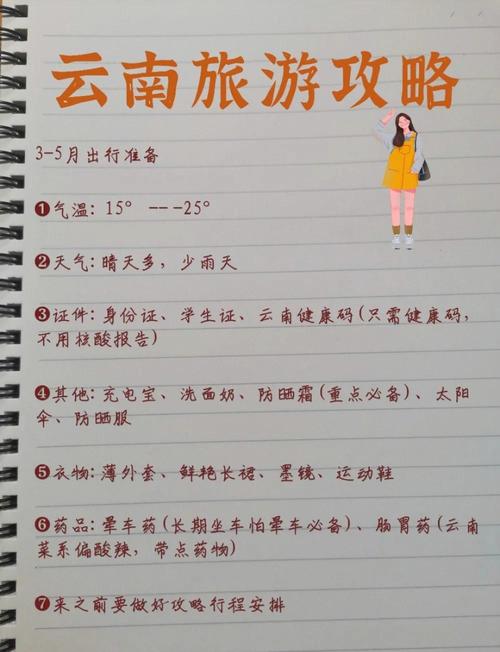 云南旅游攻略
3-5月出行准备
❶气温：15° ---25°
❷天气：晴天多，少雨天
❸证件：身份证、学生证、云南健康码(只需健康码，
不用核酸报告)
❹其他：充电宝、洗面奶、防晒霜(重点必备)、太阳
伞、防晒服
❺衣物：薄外套、鲜艳长裙、墨镜、运动鞋
❻药品：晕车药(长期坐车怕晕车必备)、肠胃药(云南
菜系偏酸辣，带点药物)
❼来之前要做好攻略行程安排